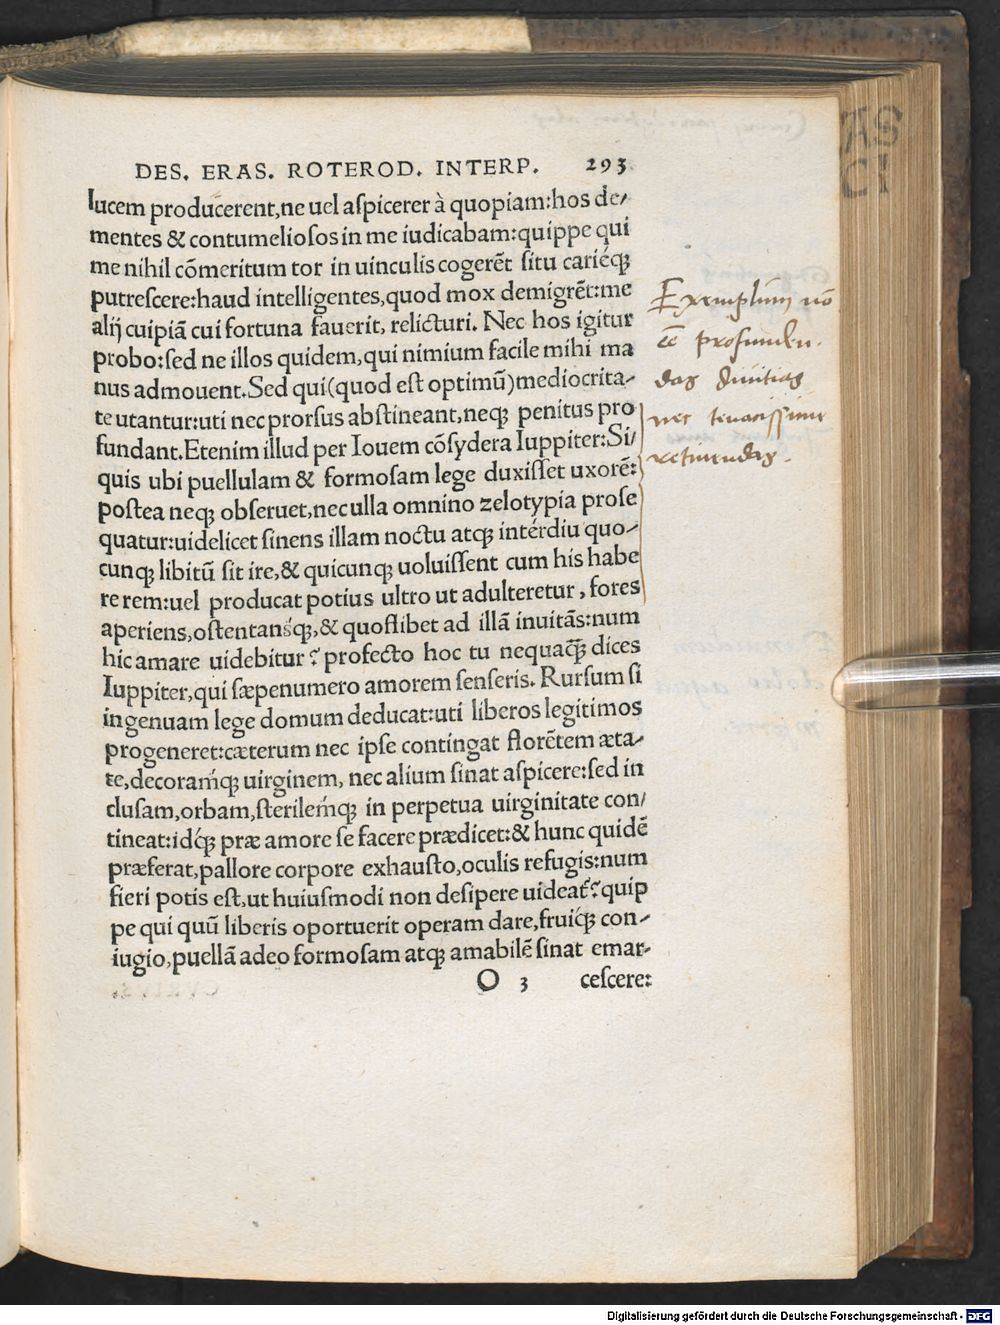 DES. ERAS. ROTEROD. INTERP. 293
lucem producerent,ne uel aſpicerer à quopiam:hos de/
mentes & contumelioſos in me iudicabam:quippe qui
me nihil cõmeritum tot in uinculis cogerẽt ſitu cariéq;
putreſcere:haud intelligentes,quod mox demigrẽt:me
alij cuipiã cui fortuna fauerit, relicturi. Nec hos igitur
probo:ſed ne illos quidem,qui nimium facile mihi ma
nus admouent.Sed qui(quod eſt optimũ)mediocrita-
te utantur:uti nec prorſus abſtineant,neq; penitus pro
fundant.Etenim illud per Iouem cõſydera Iuppiter:Si/
quis ubi puellulam & formoſam lege duxiſſet uxorẽ:
poſtea neq; obſeruet,nec ulla omnino zelotypia proſe
quatur:uidelicet ſinens illam noctu atq; intérdiu quo-
cunq; libitũ ſit ire,& quicunq; uoluiſſent cum his habe
re rem:uel producat potius ultro ut adulteretur, fores
aperiens,oſtentansq́;,& quoſlibet ad illã inuitãs:num
hic amare uidebitur? profecto hoc tu nequaq̃ dices
Iuppiter,qui ſæpenumero amorem ſenſeris. Rurſum ſi
ingenuam lege domum deducat:uti liberos legitimos
progeneret:cæterum nec ipſe contingat florẽtem æta-
te,decoramq́; uirginem, nec alium ſinat aſpicere:ſed in
cluſam,orbam,ſterilemq́; in perpetua uirginitate con/
tineat:idq́; præ amore ſe facere prædicet:& hunc quidẽ
præferat,pallore corpore exhauſto,oculis refugis:num
fieri potis eſt,ut huiuſmodi non deſipere uideat̃? quip
pe qui quũ liberis oportuerit operam dare,fruiq́; con-
iugio,puellã adeo formoſam atq; amabilẽ ſinat emar-
O 3 ceſcere:
Exemplum nõ
eẽ profunden.
das diuitias
nec tenacissime
retinendas.
AS
CI
Digitalisierung gefördert durch die Deutsche Forschungsgemeinschaft - DFG